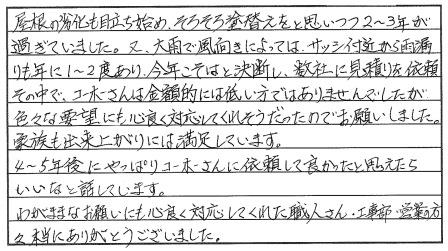 屋根の劣化も目立ち始め、そろそろ塗替えをと思いつつ2～3年が
過ぎていました。又、大雨で風向きによっては、サッシ付近から雨漏
りも年に1～2度あり、今年こそはと決断し、数社に見積りを依頼
その中で、コーホーさんは金額的には低い方ではありませんでしたが
色々な要望にも心良く対応してくれそうだったのでお願いしました。
家族も出来上がりには満足しています。
4～5年後にやっぱりコーホーさんに依頼して良かったと思えたら
いいなと話しています。
わがままなお願いにも心良く対応してくれた職人さん・工事部・営業の方
々本当にありがとうございました。